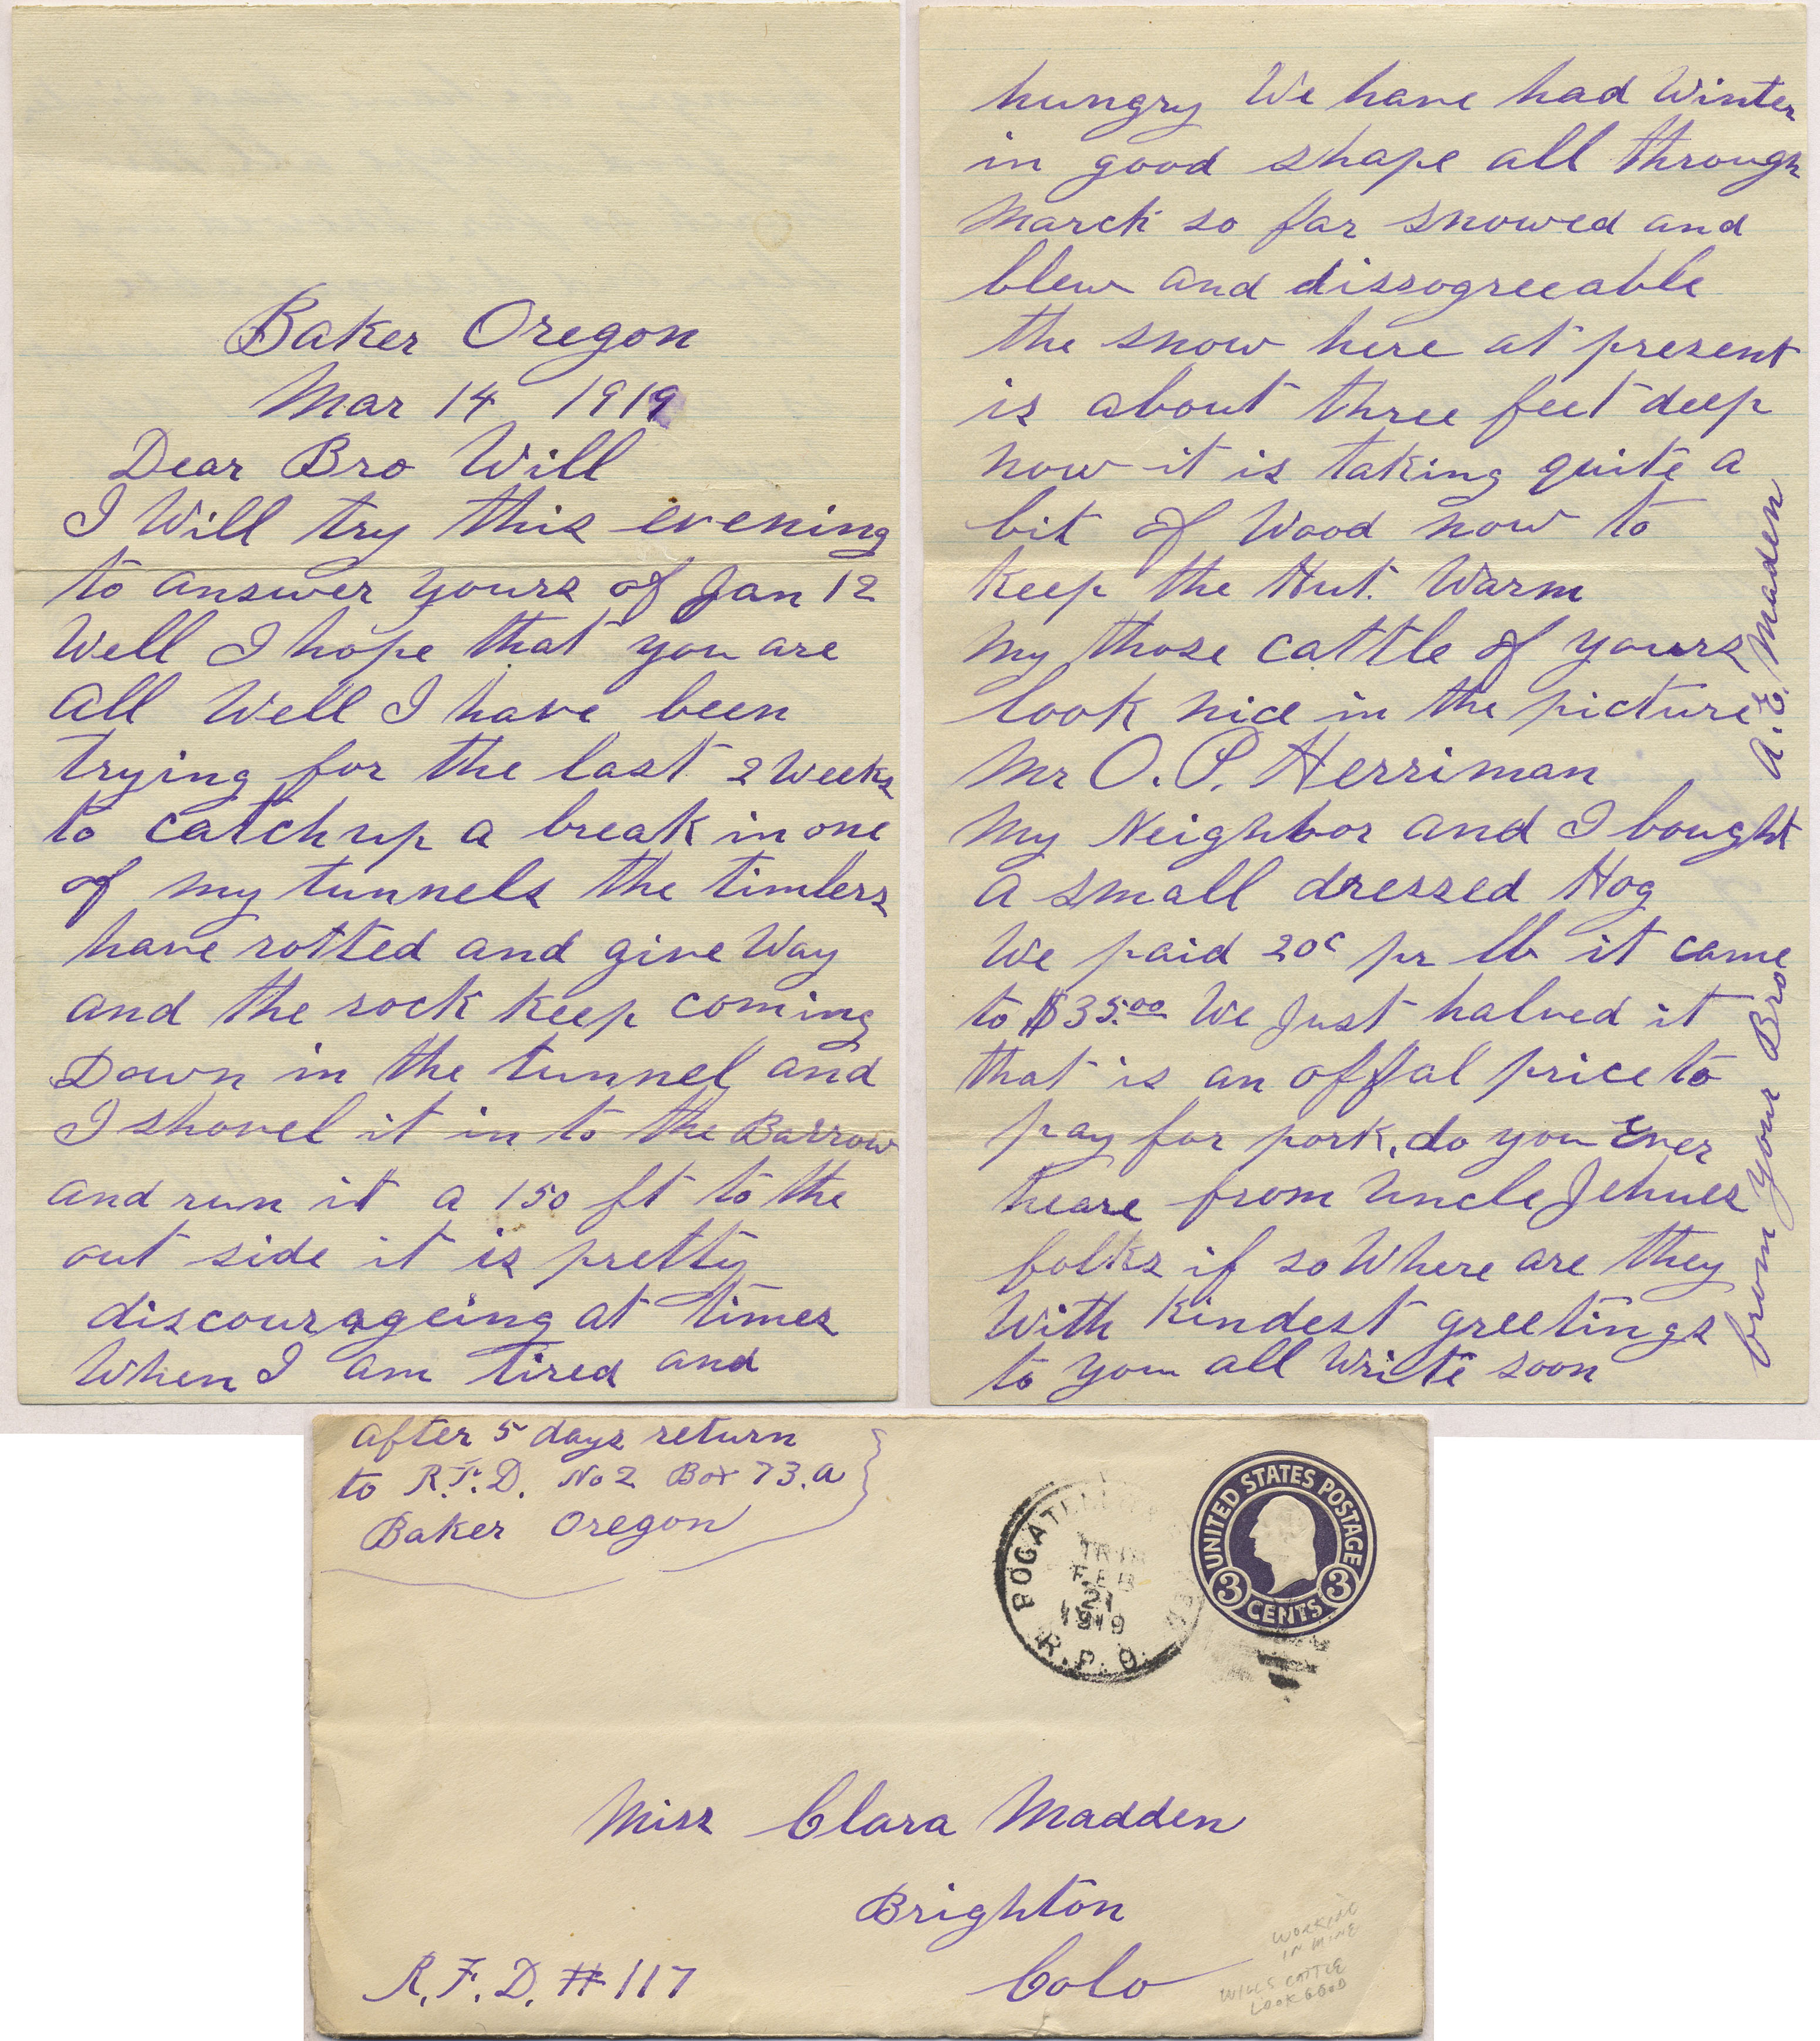 Baker Oregon
Mar 14 1919
Dear Bro Will
I Will try this evening
to answer yours of Jan 12
Well I hope that you are
all Well I have been
trying for the last 2 Weeks
to catch up a break in one
of my tunnels the timbers
have rotted and give Way
and the rock keep coming
Down in the tunnel and
I shovel it in to the Barrow
and run it a 150 ft to the
out side it is pretty
discourageing at times
When I am tired and
hungry We have had Winter
in good shape all through
March so far snowed and
blew and dissogreeable
the snow here at present
is about three feet deep
now it is taking quite a
bit of Wood now to
Keep the Hut. Warm
my those cattle of yours
look nice in the picture
Mr O. P. Herriman
my Neighbor and I bought
a small dressed Hog
We paid 20c pr lb it came
to $35.00 We Just halved it
that is an offal price to
pay for pork. do you Ever
heare from Uncle Jehues
folks if so Where are they
With Kindest greetings
to you all Write soon
from your Bro A. E. Madden
after 5 days return
to R.F.D. No 2 Box 73.a
Baker Oregon
TR 18
FEB
21
1919
R.P.O.
UNITED STATES POSTAGE
3 CENTS 3
Miss Clara Madden
Brighton
Colo
R.F.D. # 117
WORKING
IN MINE
WILLS CATTLE
LOOK GOOD